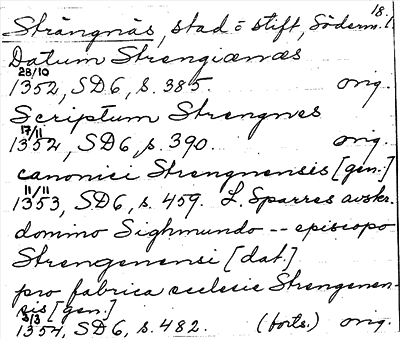 18.
Strängnäs, stad o stift, Söderm. l
Datum Strengiænæs
23/10
1352, SD6, s. 385. orig.
Scriptum Strengnes
17/11
1352, SD6, s. 390. orig.
canonici Strengnensis [gen.]
11/11
1353, SD6, s. 459. L. Sparres avskr.
domino Sighmundo -- episcopo
Strengenensi [dat.]
pro fabrica ecclesie Strengenen-
sis [gen.]
3/3
1354, SD6, s. 482. (forts.) orig.